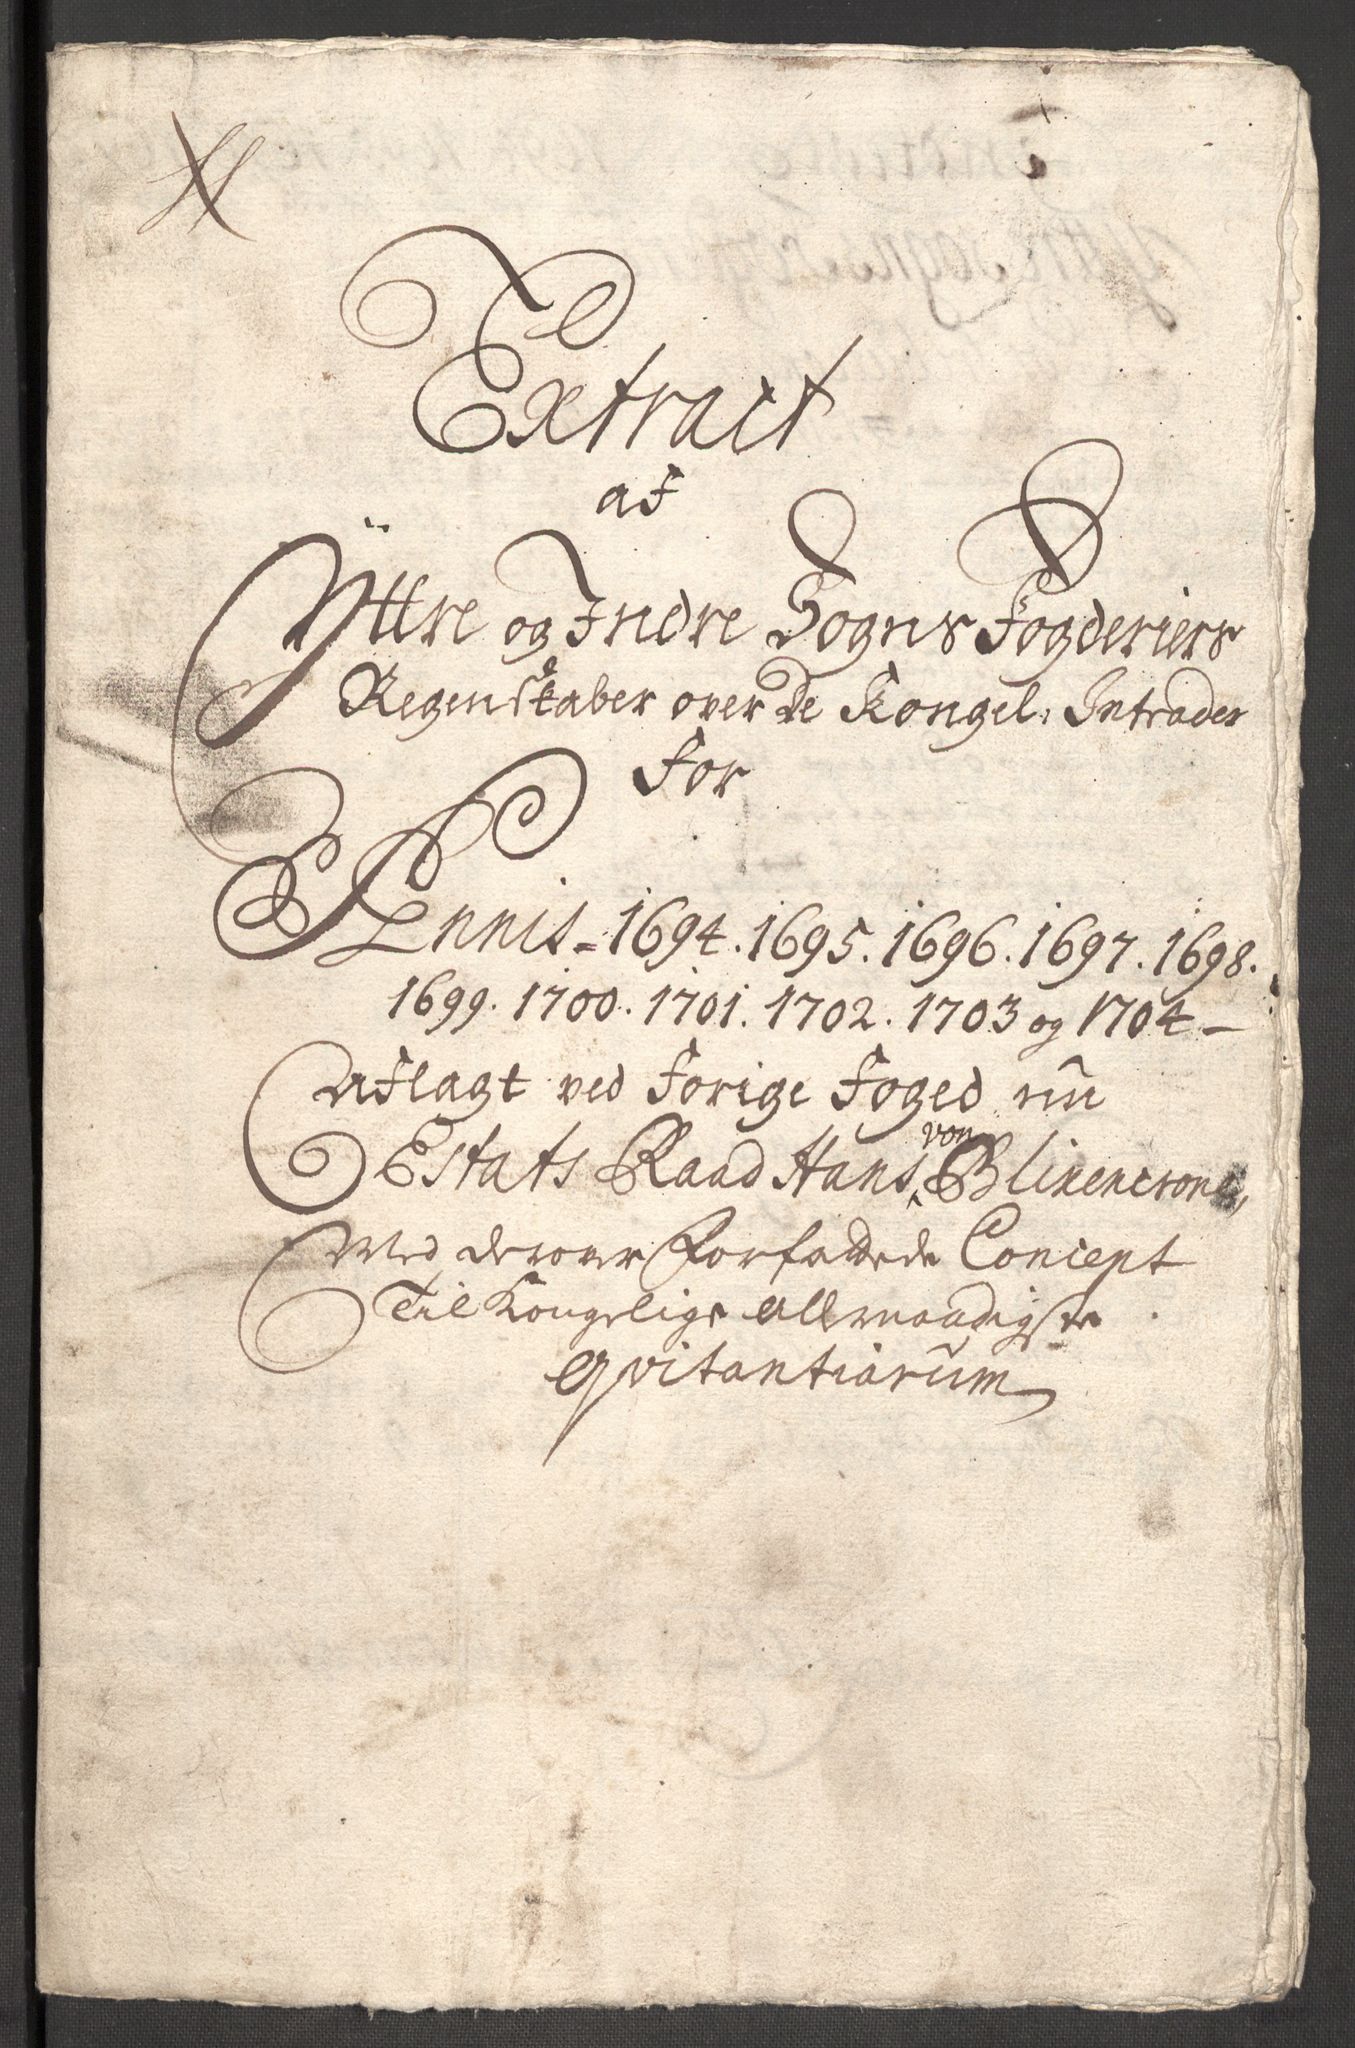 Extract
af
Ÿttre og Indre Sogns Fogderiers
Regenskaber over de Kongel: Intrader
for
Annis - 1694. 1695. 1696. 1697. 1698.
1699. 1700. 1701. 1702. 1703 og 1704 -
Aflagt ved forige Foged nu
Estats Raad Hans von Blixencrone,
Med derover forfattede Concept
Til Kongelige allernaadigste
Qvitantiarum